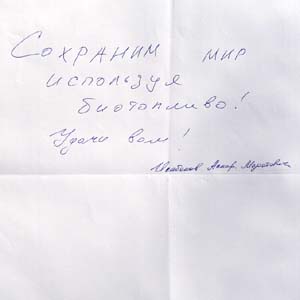 Сохраним мир
используя
биотопливо!
Удачи вам!
Аскар Муратович